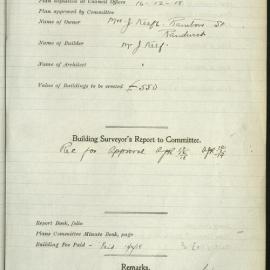 Plan deposited at Council Office 16-12-18
Plan approved by Committee
Name of Owner Mrs J. Keefe Rainbow St
Randwick
Name of Builder Mr J Keef.
Name of Architect "
Value of Buildings to be erected £550
Building Surveyor's Report to Committee.
Rec for Approval
Report Book, folio
Plans Committee Minute Book, page
Building Fee Paid - Paid
Remarks.